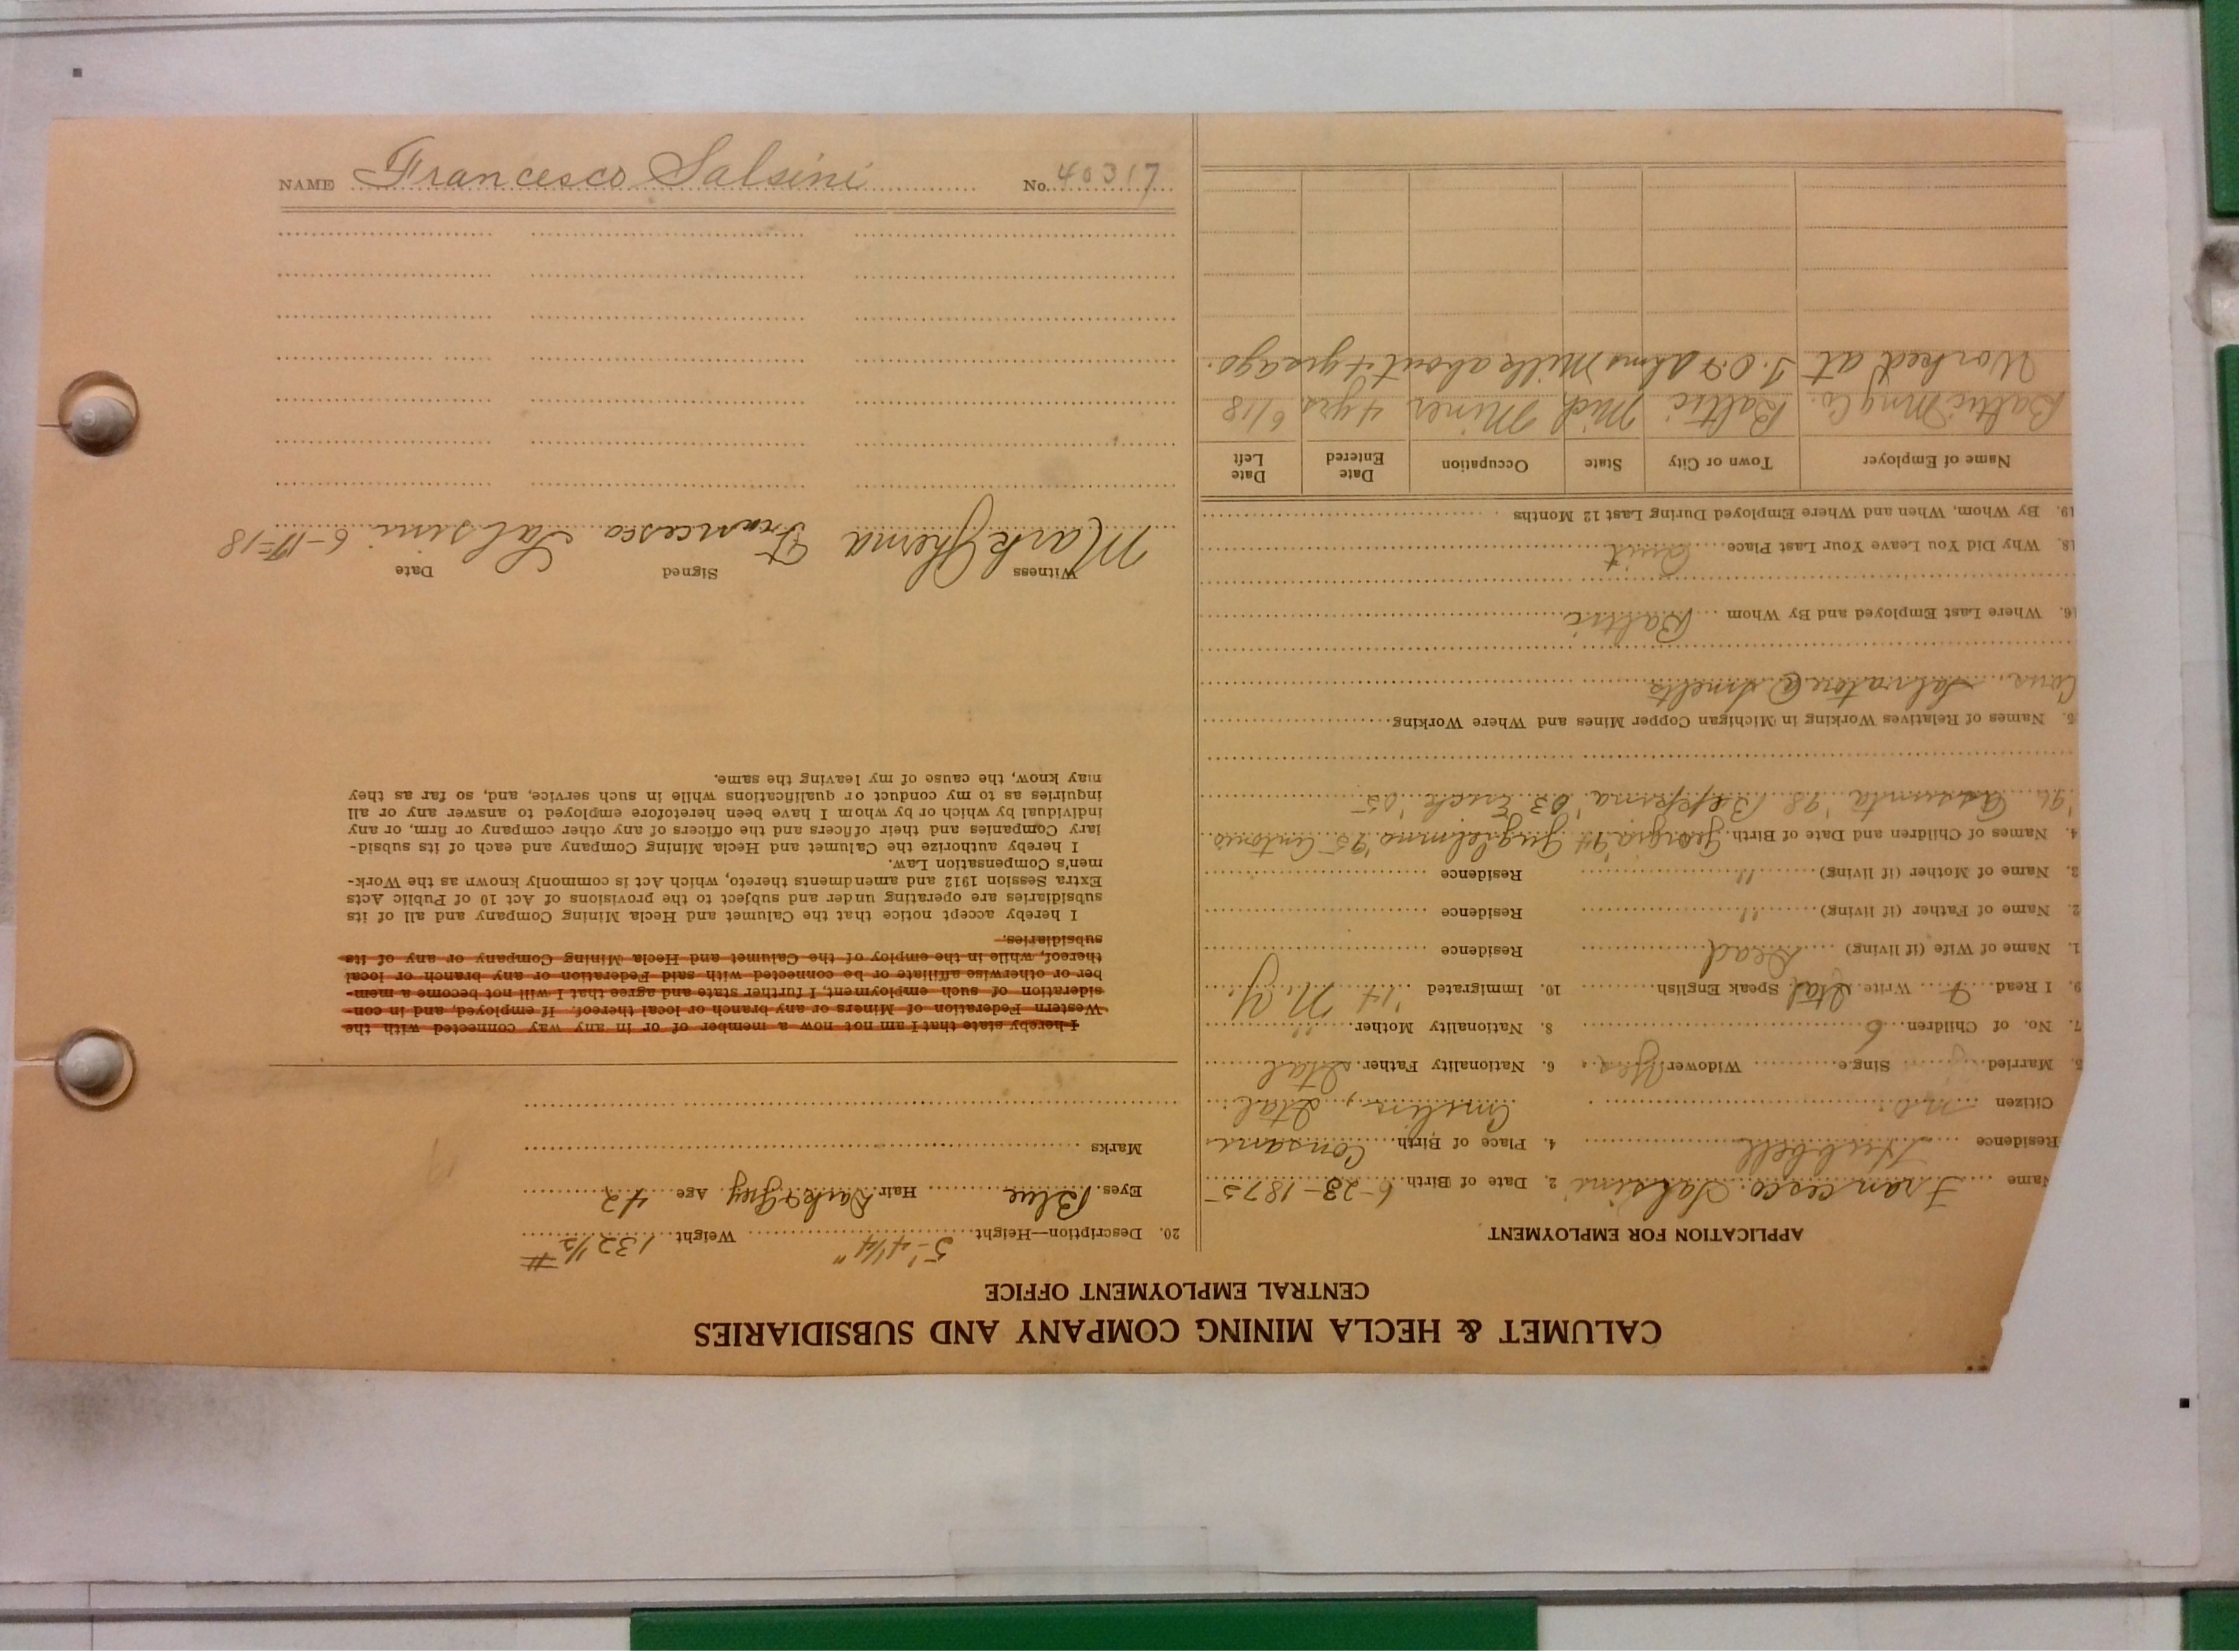 CALUMET & HECLA MINING COMPANY AND SUBSIDIARIES
CENTRAL EMPLOYMENT OFFICE
APPLICATION FOR EMPLOYMENT
Name Francesco Salsini 2. Date of Birth 6-23-1875
Residence Hubbell 4. Place of Birth
Citizen no. Ital.
5. Married Single Widower Yes. 6. Nationality Father Ital
7. No. of Children 6 8. Nationality Mother "
9. I Read Write Ital Speak English 10. Immigrated '14 N.Y.
1. Name of Wife (if living) Dead Residence
2. Name of Father (if living) " Residence
3. Name of Mother (if living) " Residence
4. Names of Children and Date of Birth. Georgia '94 Guglielmina '95 Antonio
'96 Assunta '98 Bepperina '03 '05
5. Names of Relatives Working in Michigan Copper Mines and Where Working
Cous. Salvatore @ Smelts
16. Where Last Employed and By Whom Baltic
18. Why Did You Leave Your Last Place Quit
19. By Whom, When and Where Employed During Last 12 Months
Name of Employer Town or City State Occupation Date Entered Date Left
Baltic Mng Co. Baltic Mich Miner 4 yrs 6/18
Worked at Mill about 4 yrs ago.
20. Description—Height 5'-4 1/4" Weight 132 1/2 #
Eyes Blue Hair Dark & Grey Age 42
Marks
I hereby state that I am not now a member of or in any way connected with the
Western Federation of Miners or any branch or local thereof. If employed, and in con-
sideration of such employment, I further state and agree that I will not become a mem-
ber or otherwise affiliate or be connected with said Federation or any branch or local
thereof, while in the employ of the Calumet and Hecla Mining Company or any of its
subsidiaries.
I hereby accept notice that the Calumet and Hecla Mining Company and all of its
subsidiaries are operating under and subject to the provisions of Act 10 of Public Acts
Extra Session 1912 and amendments thereto, which Act is commonly known as the Work-
men's Compensation Law.
I hereby authorize the Calumet and Hecla Mining Company and each of its subsid-
iary Companies and their officers and the officers of any other company or firm, or any
individual by which or by whom I have been heretofore employed to answer any or all
inquiries as to my conduct or qualifications while in such service, and, so far as they
may know, the cause of my leaving the same.
Witness Signed Date
Mark Francesco Salsini 6-17-18
NAME Francesco Salsini No. 40317